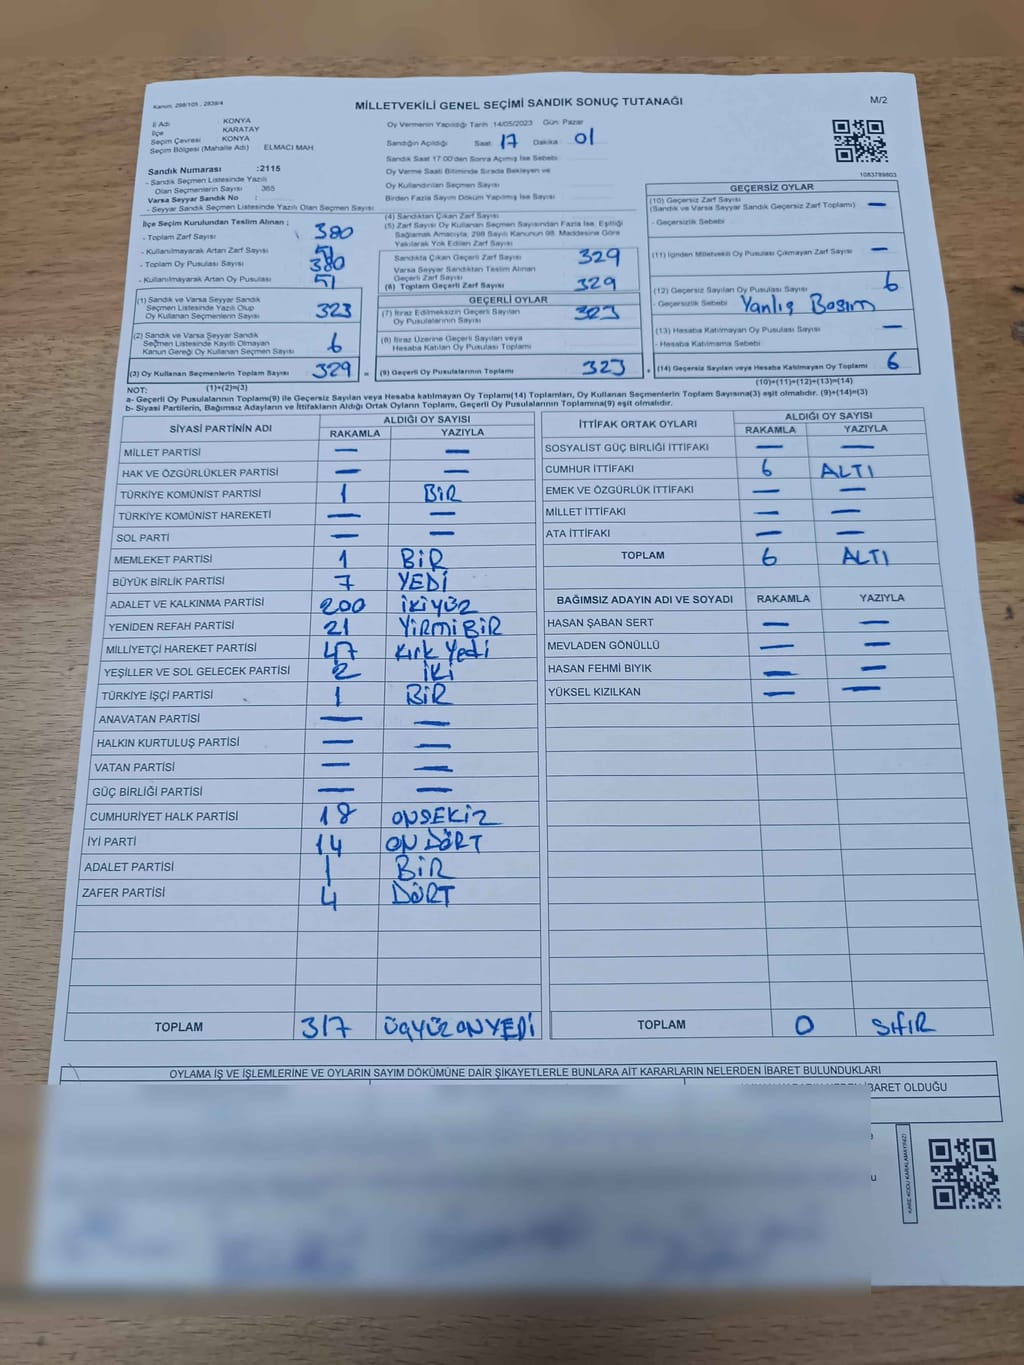 Kanun: 298/105 , 2839/4
MİLLETVEKİLİ GENEL SEÇİMİ SANDIK SONUÇ TUTANAĞI
M/2
İl Adı : KONYA
İlçe : KARATAY
Seçim Çevresi : KONYA
Seçim Bölgesi (Mahalle Adı) : ELMACI MAH
Sandık Numarası :2115
- Sandık Seçmen Listesinde Yazılı
Olan Seçmenlerin Sayısı 365
Varsa Seyyar Sandık No :
- Seyyar Sandık Listesinde Yazılı Olan Seçmen Sayısı
Oy Vermenin Yapıldığı Tarih 14/05/2023 Gün: Pazar
Sandığın Açıldığı Saat: 17 Dakika: 01
Sandık Saat 17:00'den Sonra Açılmış İse Sebebi
Oy Verme Saati Bitiminde Sırada Bekleyen ve
Oy Kullandırılan Seçmen Sayısı
Birden Fazla Sayım Döküm Yapılmış İse Sayısı
1083789803
İlçe Seçim Kurulundan Teslim Alınan ;
- Toplam Zarf Sayısı 380
- Kullanılmayarak Artan Zarf Sayısı 51
- Toplam Oy Pusulası Sayısı 380
- Kullanılmayarak Artan Oy Pusulası 51
(1) Sandık ve Varsa Seyyar Sandık
Seçmen Listesinde Yazılı Olup
Oy Kullanan Seçmenlerin Sayısı 323
(2) Sandık ve Varsa Seyyar Sandık
Seçmen Listesinde Kayıtlı Olmayan
Kanun Gereği Oy Kullanan Seçmen Sayısı 6
(3) Oy Kullanan Seçmenlerin Toplam Sayısı 329 =
(1)+(2)=(3)
(4) Sandıktan Çıkan Zarf Sayısı
(5) Zarf Sayısı Oy Kullanan Seçmen Sayısından Fazla İse, Eşitliği
Sağlamak Amacıyla, 298 Sayılı Kanunun 98. Maddesine Göre
Yakılarak Yok Edilen Zarf Sayısı
Sandıkta Çıkan Geçerli Zarf Sayısı 329
Varsa Seyyar Sandıktan Teslim Alınan
Geçerli Zarf Sayısı
(6) Toplam Geçerli Zarf Sayısı 329
GEÇERLİ OYLAR
(7) İtiraz Edilmeksizin Geçerli Sayılan
Oy Pusulalarının Sayısı 323
(8) İtiraz Üzerine Geçerli Sayılan veya
Hesaba Katılan Oy Pusulası Toplamı
(9) Geçerli Oy Pusulalarının Toplamı 323 +
GEÇERSİZ OYLAR
(10) Geçersiz Zarf Sayısı
(Sandık ve Varsa Seyyar Sandık Geçersiz Zarf Toplamı) —
- Geçersizlik Sebebi
(11) İçinden Milletvekili Oy Pusulası Çıkmayan Zarf Sayısı —
(12) Geçersiz Sayılan Oy Pusulası Sayısı 6
- Geçersizlik Sebebi Yanlış Basım
(13) Hesaba Katılmayan Oy Pusulası Sayısı —
- Hesaba Katılmama Sebebi
(14) Geçersiz Sayılan veya Hesaba Katılmayan Oy Toplamı 6
(10)+(11)+(12)+(13)=(14)
NOT:
a- Geçerli Oy Pusulalarının Toplamı(9) ile Geçersiz Sayılan veya Hesaba katılmayan Oy Toplam(14) Toplamları, Oy Kullanan Seçmenlerin Toplam Sayısına(3) eşit olmalıdır. (9)+(14)=(3)
b- Siyasi Partilerin, Bağımsız Adayların ve İttifakların Aldığı Ortak Oyların Toplamı, Geçerli Oy Pusulalarının Toplamına(9) eşit olmalıdır.
SİYASİ PARTİNİN ADI ALDIĞI OY SAYISI
RAKAMLA YAZIYLA
MİLLET PARTİSİ — —
HAK VE ÖZGÜRLÜKLER PARTİSİ — —
TÜRKİYE KOMÜNİST PARTİSİ 1 BİR
TÜRKİYE KOMÜNİST HAREKETİ — —
SOL PARTİ — —
MEMLEKET PARTİSİ 1 BİR
BÜYÜK BİRLİK PARTİSİ 7 YEDİ
ADALET VE KALKINMA PARTİSİ 200 İKİYÜZ
YENİDEN REFAH PARTİSİ 21 YİRMİ BİR
MİLLİYETÇİ HAREKET PARTİSİ 47 Kırk Yedi
YEŞİLLER VE SOL GELECEK PARTİSİ 2 İKİ
TÜRKİYE İŞÇİ PARTİSİ 1 BİR
ANAVATAN PARTİSİ — —
HALKIN KURTULUŞ PARTİSİ — —
VATAN PARTİSİ — —
GÜÇ BİRLİĞİ PARTİSİ — —
CUMHURİYET HALK PARTİSİ 18 ONSEKİZ
İYİ PARTİ 14 ON DÖRT
ADALET PARTİSİ 1 BİR
ZAFER PARTİSİ 4 DÖRT
TOPLAM 317 ÜÇYÜZ ONYEDİ
İTTİFAK ORTAK OYLARI ALDIĞI OY SAYISI
RAKAMLA YAZIYLA
SOSYALİST GÜÇ BİRLİĞİ İTTİFAKI — —
CUMHUR İTTİFAKI 6 ALTI
EMEK VE ÖZGÜRLÜK İTTİFAKI — —
MİLLET İTTİFAKI — —
ATA İTTİFAKI — —
TOPLAM 6 ALTI
BAĞIMSIZ ADAYIN ADI VE SOYADI RAKAMLA YAZIYLA
HASAN ŞABAN SERT — —
MEVLADEN GÖNÜLLÜ — —
HASAN FEHMİ BIYIK — —
YÜKSEL KIZILKAN — —
TOPLAM 0 SIFIR
OYLAMA İŞ VE İŞLEMLERİNE VE OYLARIN SAYIM DÖKÜMÜNE DAİR ŞİKAYETLERLE BUNLARA AİT KARARLARIN NELERDEN İBARET BULUNDUKLARI
İBARET OLDUĞU
KARE KODU KARALAMAYINIZ!